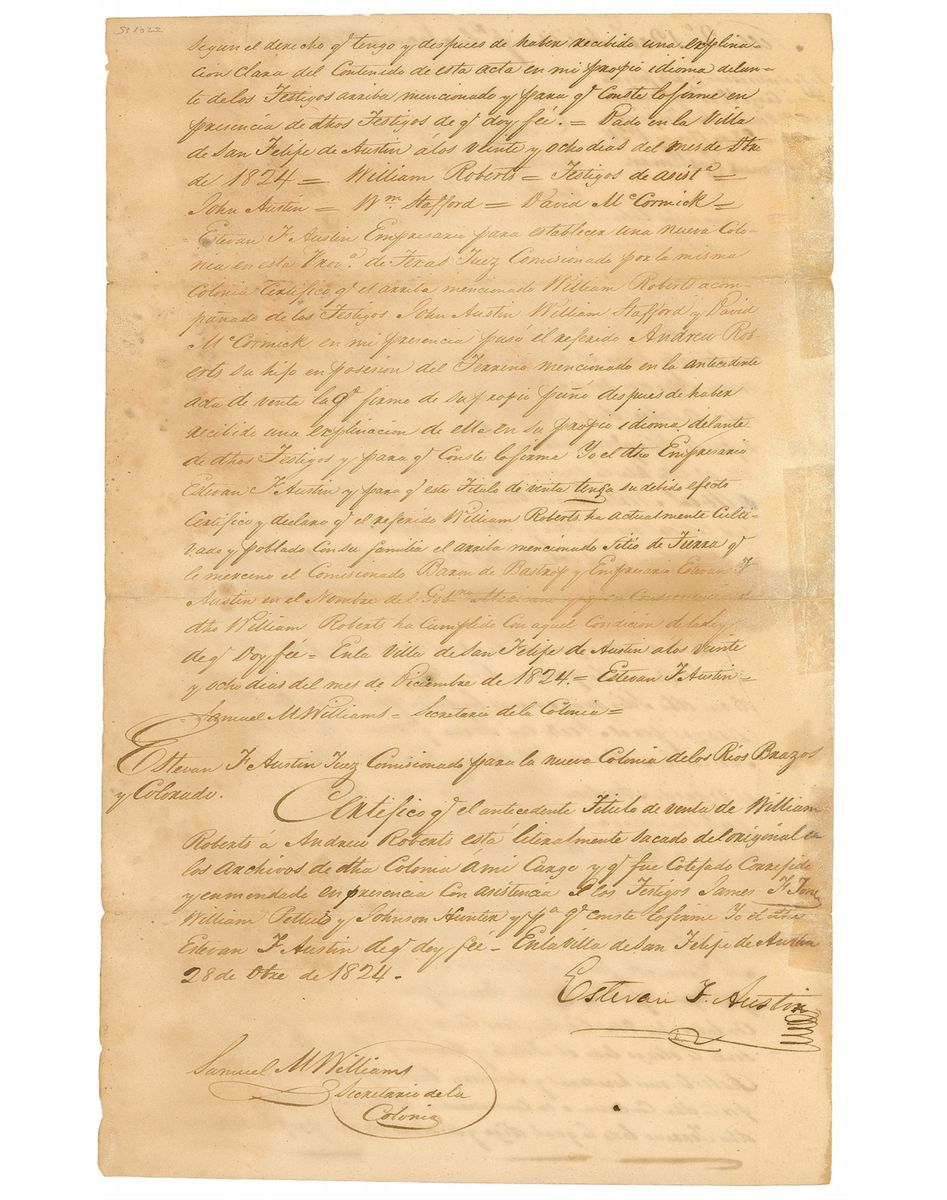 St 1022
Segun el derecho q.e tengo y despues de haber recibido una esplina-
cion clara del Contenido de esta acta en mi propio idioma delan-
te de los Testigos arriba mencionado y para q.e Conste lo firme en
presencia de dhos Testigos de q.e doy fée. = Dado en la Villa
de San Felipe de Austin á los Veinte y ocho dias del mes de Dbre
de 1824 = William Roberts = Testigos de asist.a =
John Austin = W.m Stafford = David McCormick =
= Estevan F Austin Empresario para establecer una nueva Colo-
nia en esta Prov.a de Texas Juez Comisionado por la misma
Colonia Certifico q.e el arriba mencionado William Roberts acom-
pañado de los Testigos John Austin William Stafford y David
McCormick en mi presencia pusó el referido Andrew Rob-
erts su hijo en posesion del Terreno mencionado en la antecedente
acta de venta la q.e firmo de su propio puño despues de haber
recibido una esplinacion de ella en su propio idioma delante
de dhos Testigos y para q.e Conste lo firma Yo el dho Empresario
Estevan F Austin y para q.e este Titulo de venta tenga su debido efecto
Certifico y declaro q.e el referido William Roberts ha actualmente Culti-
vado y poblado con su familia el arriba mencionado Sitio de Tierra q.e
le merceno el Comisionado Baron de Bastrop y Empresario Estevan F
Austin en el Nombre del Gob.no Mexicano y en su Consecuencia el
dho William Roberts ha Cumplido Con aquel Condicion de la ley
de q.e Doy fée = En la Villa de San Felipe de Austin a los Veinte
y ocho dias del mes de Diciembre de 1824 = Estevan F Austin =
Samuel M Williams = Secretario de la Colonia =
Estevan F Austin Juez Comisionado para la nueva Colonia de los Ríos Brazos
y Colorado.
Certifico q.e el antecedente Titulo de venta de William
Roberts á Andrew Roberts está literalmente sacado del original en
los Archivos de dha Colonia á mi Cargo y q.e fue Cotejado Corregido
y enmendado en presencia Con asistencia de los Testigos James F
William Pettus y Johnson Hunter y p.a q.e conste lo firme Yo el dho
Estevan F Austin de q.e doy fée = En la Villa de San Felipe de Austin
28 de Dbre de 1824.
Estevan F. Austin
Samuel M Williams
Secretario de la
Colonia